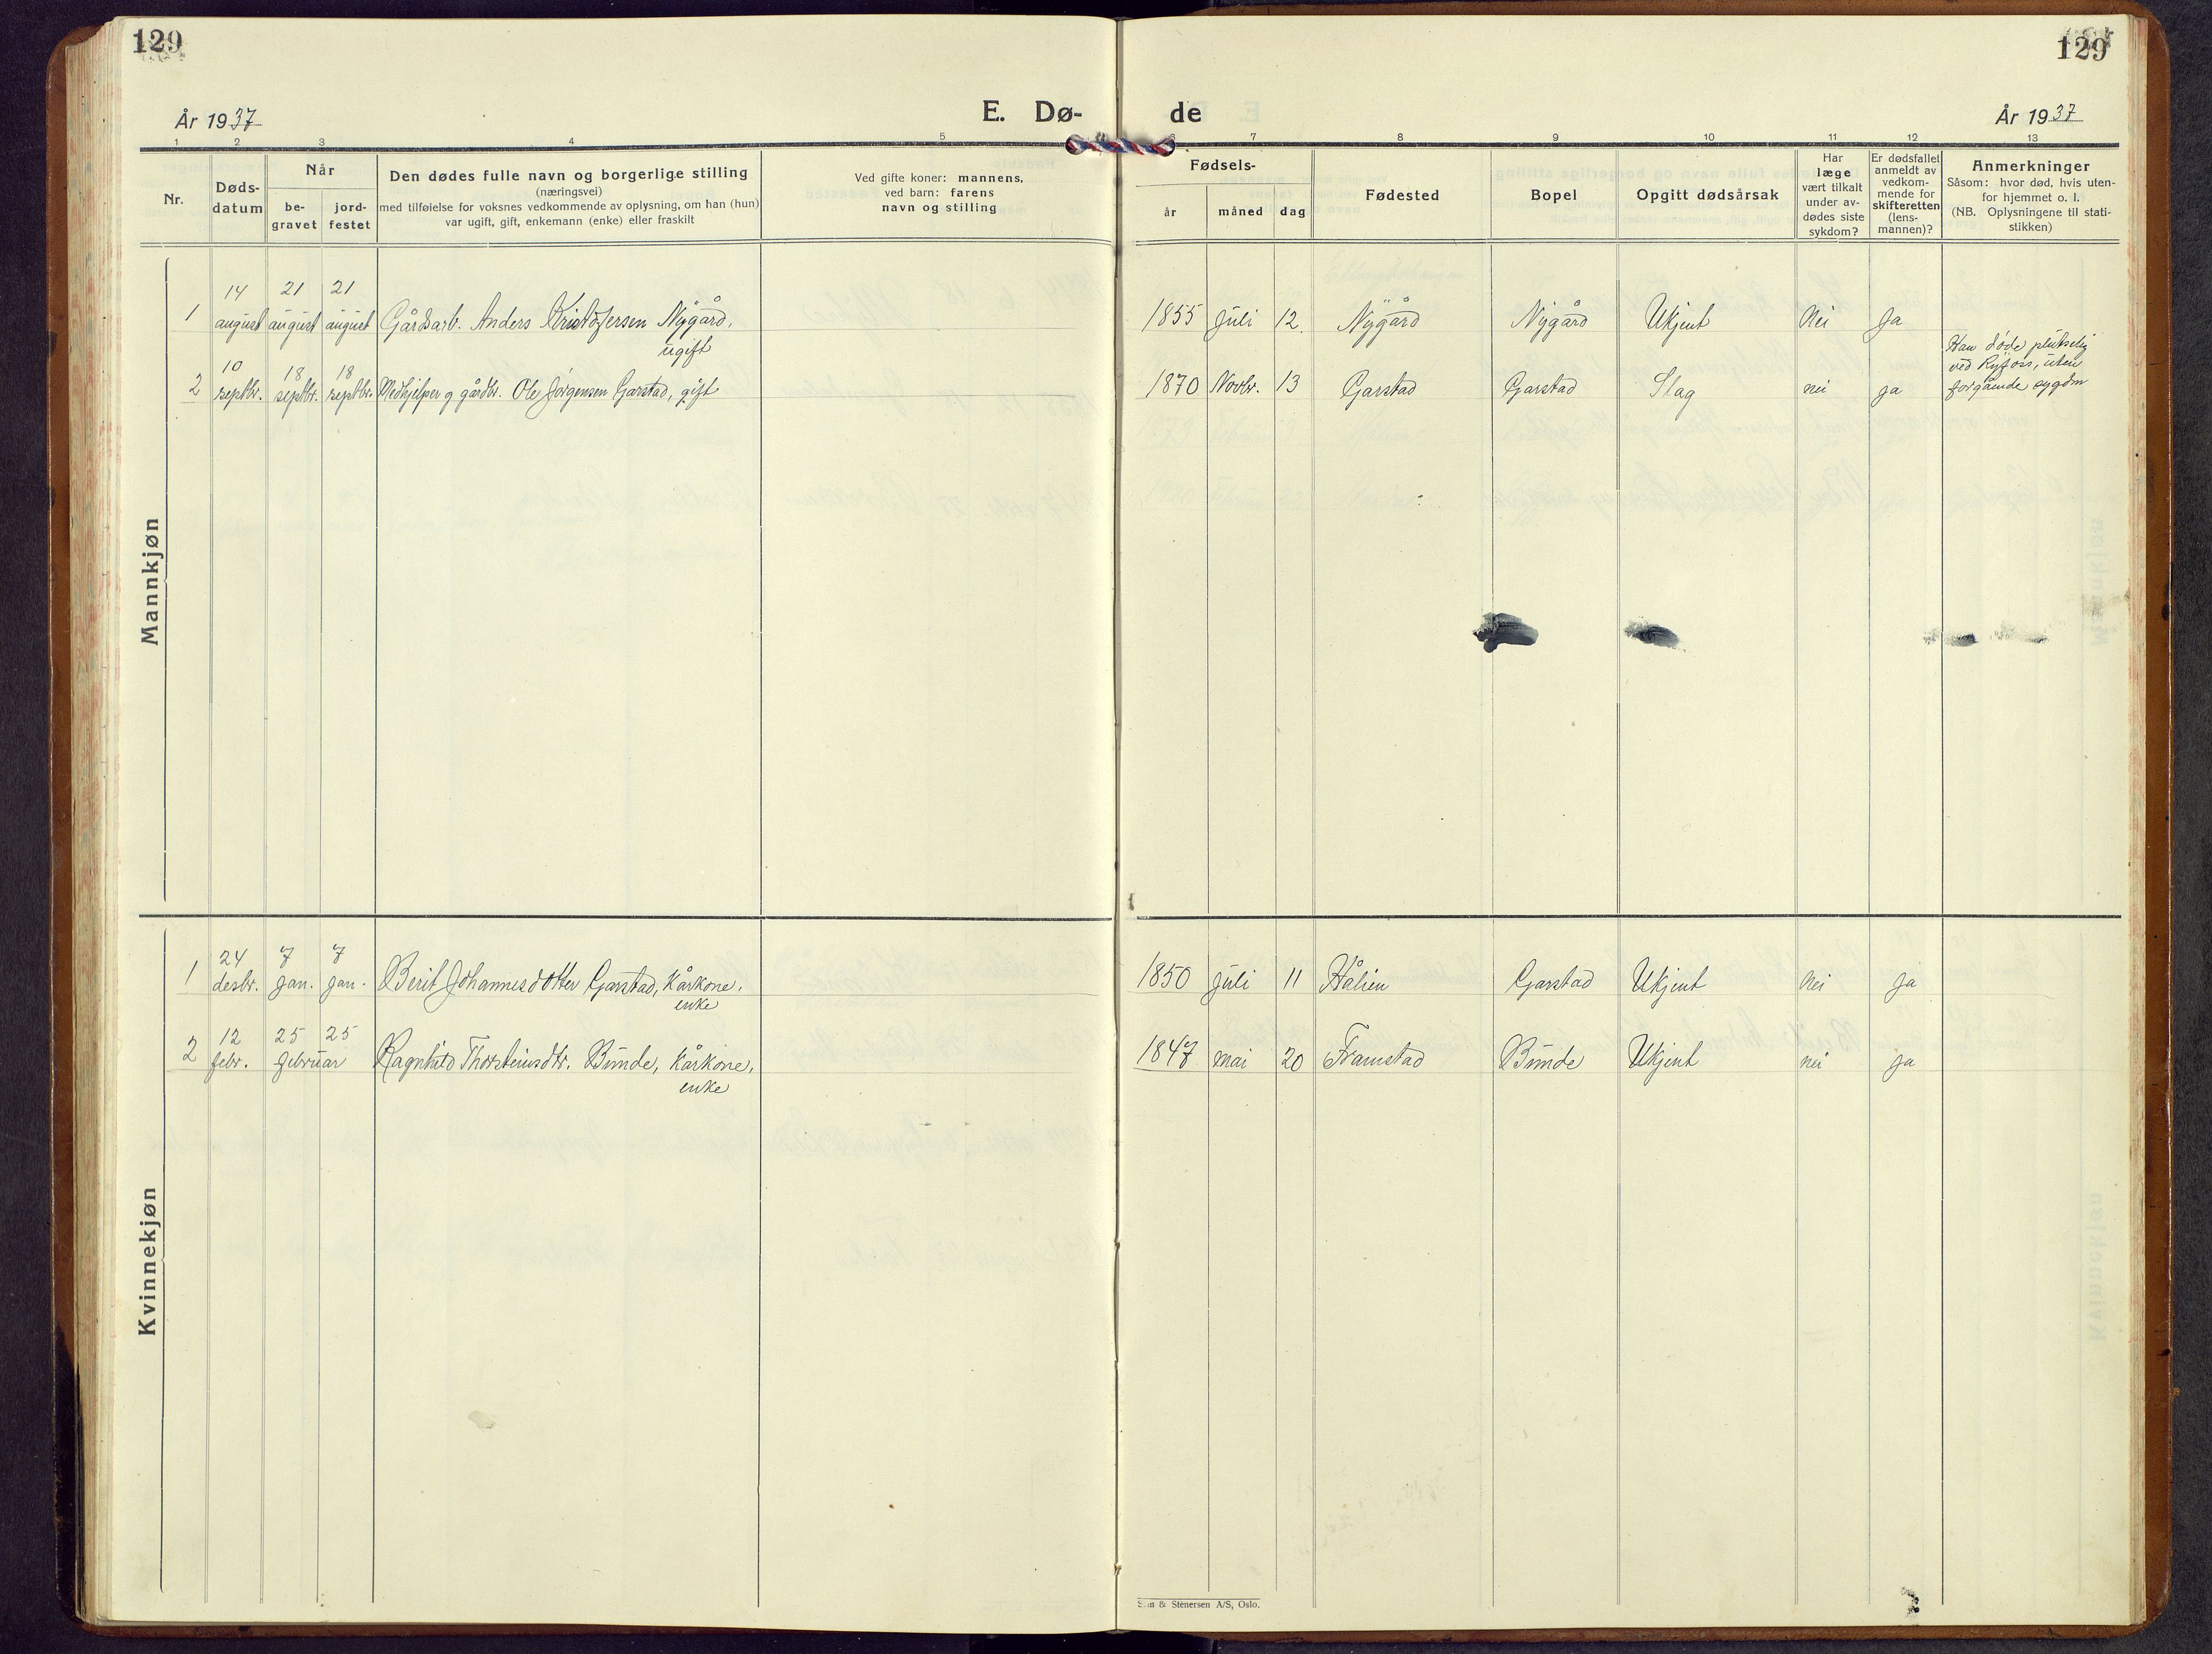 129
129
År 1937
E. Dø-
de
År 1937
1 2 3 4 5 6 7 8 9 10 11 12 13
Nr.
Døds-
datum
Når
be-
gravet
jord-
festet
Den dødes fulle navn og borgerlige stilling
(næringsvei)
med tilføielse for voksnes vedkommende av oplysning, om han (hun)
var ugift, gift, enkemann (enke) eller fraskilt
Ved gifte koner: mannens,
ved barn: farens
navn og stilling
Fødsels-
år
måned
dag
Fødested
Bopel
Opgitt dødsårsak
Har
læge
vært tilkalt
under av-
dødes siste
sykdom?
Er dødsfallet
anmeldt av
vedkom-
mende for
skifteretten
(lens-
mannen)?
Anmerkninger
Såsom: hvor død, hvis uten-
for hjemmet o. l.
(NB. Oplysningene til stati-
stikken)
Mannkjøn
14 21 21
1 august august august Gårdsarb. Anders Kristofersen Nygård, 1855 Juli 12. Nygård Nygård Ukjent Nei Ja
ugift
10 18 18
2 septbr. septbr. septbr. Medhjelper og gårdbr. Ole Jørgensen Garstad, gift 1870 Novbr. 13 Garstad Garstad Slag nei ja
Han døde plutselig
ved Ryfoss, uten
forgående sygdm
Kvinnekjøn
24 7 7
1 desbr. jan. jan. Berit Johannesdotter Garstad, Kårkone, 1850 juli 11 Hålien Garstad Ukjent Nei ja
enke
12 25 25
2 febr. februar Ragnhild Thorsteinsdtr. Bunde, Kårkone, 1847 mai 20 Framstad Bunde Ukjent nei ja
enke
& Stenersen A/S, Oslo.